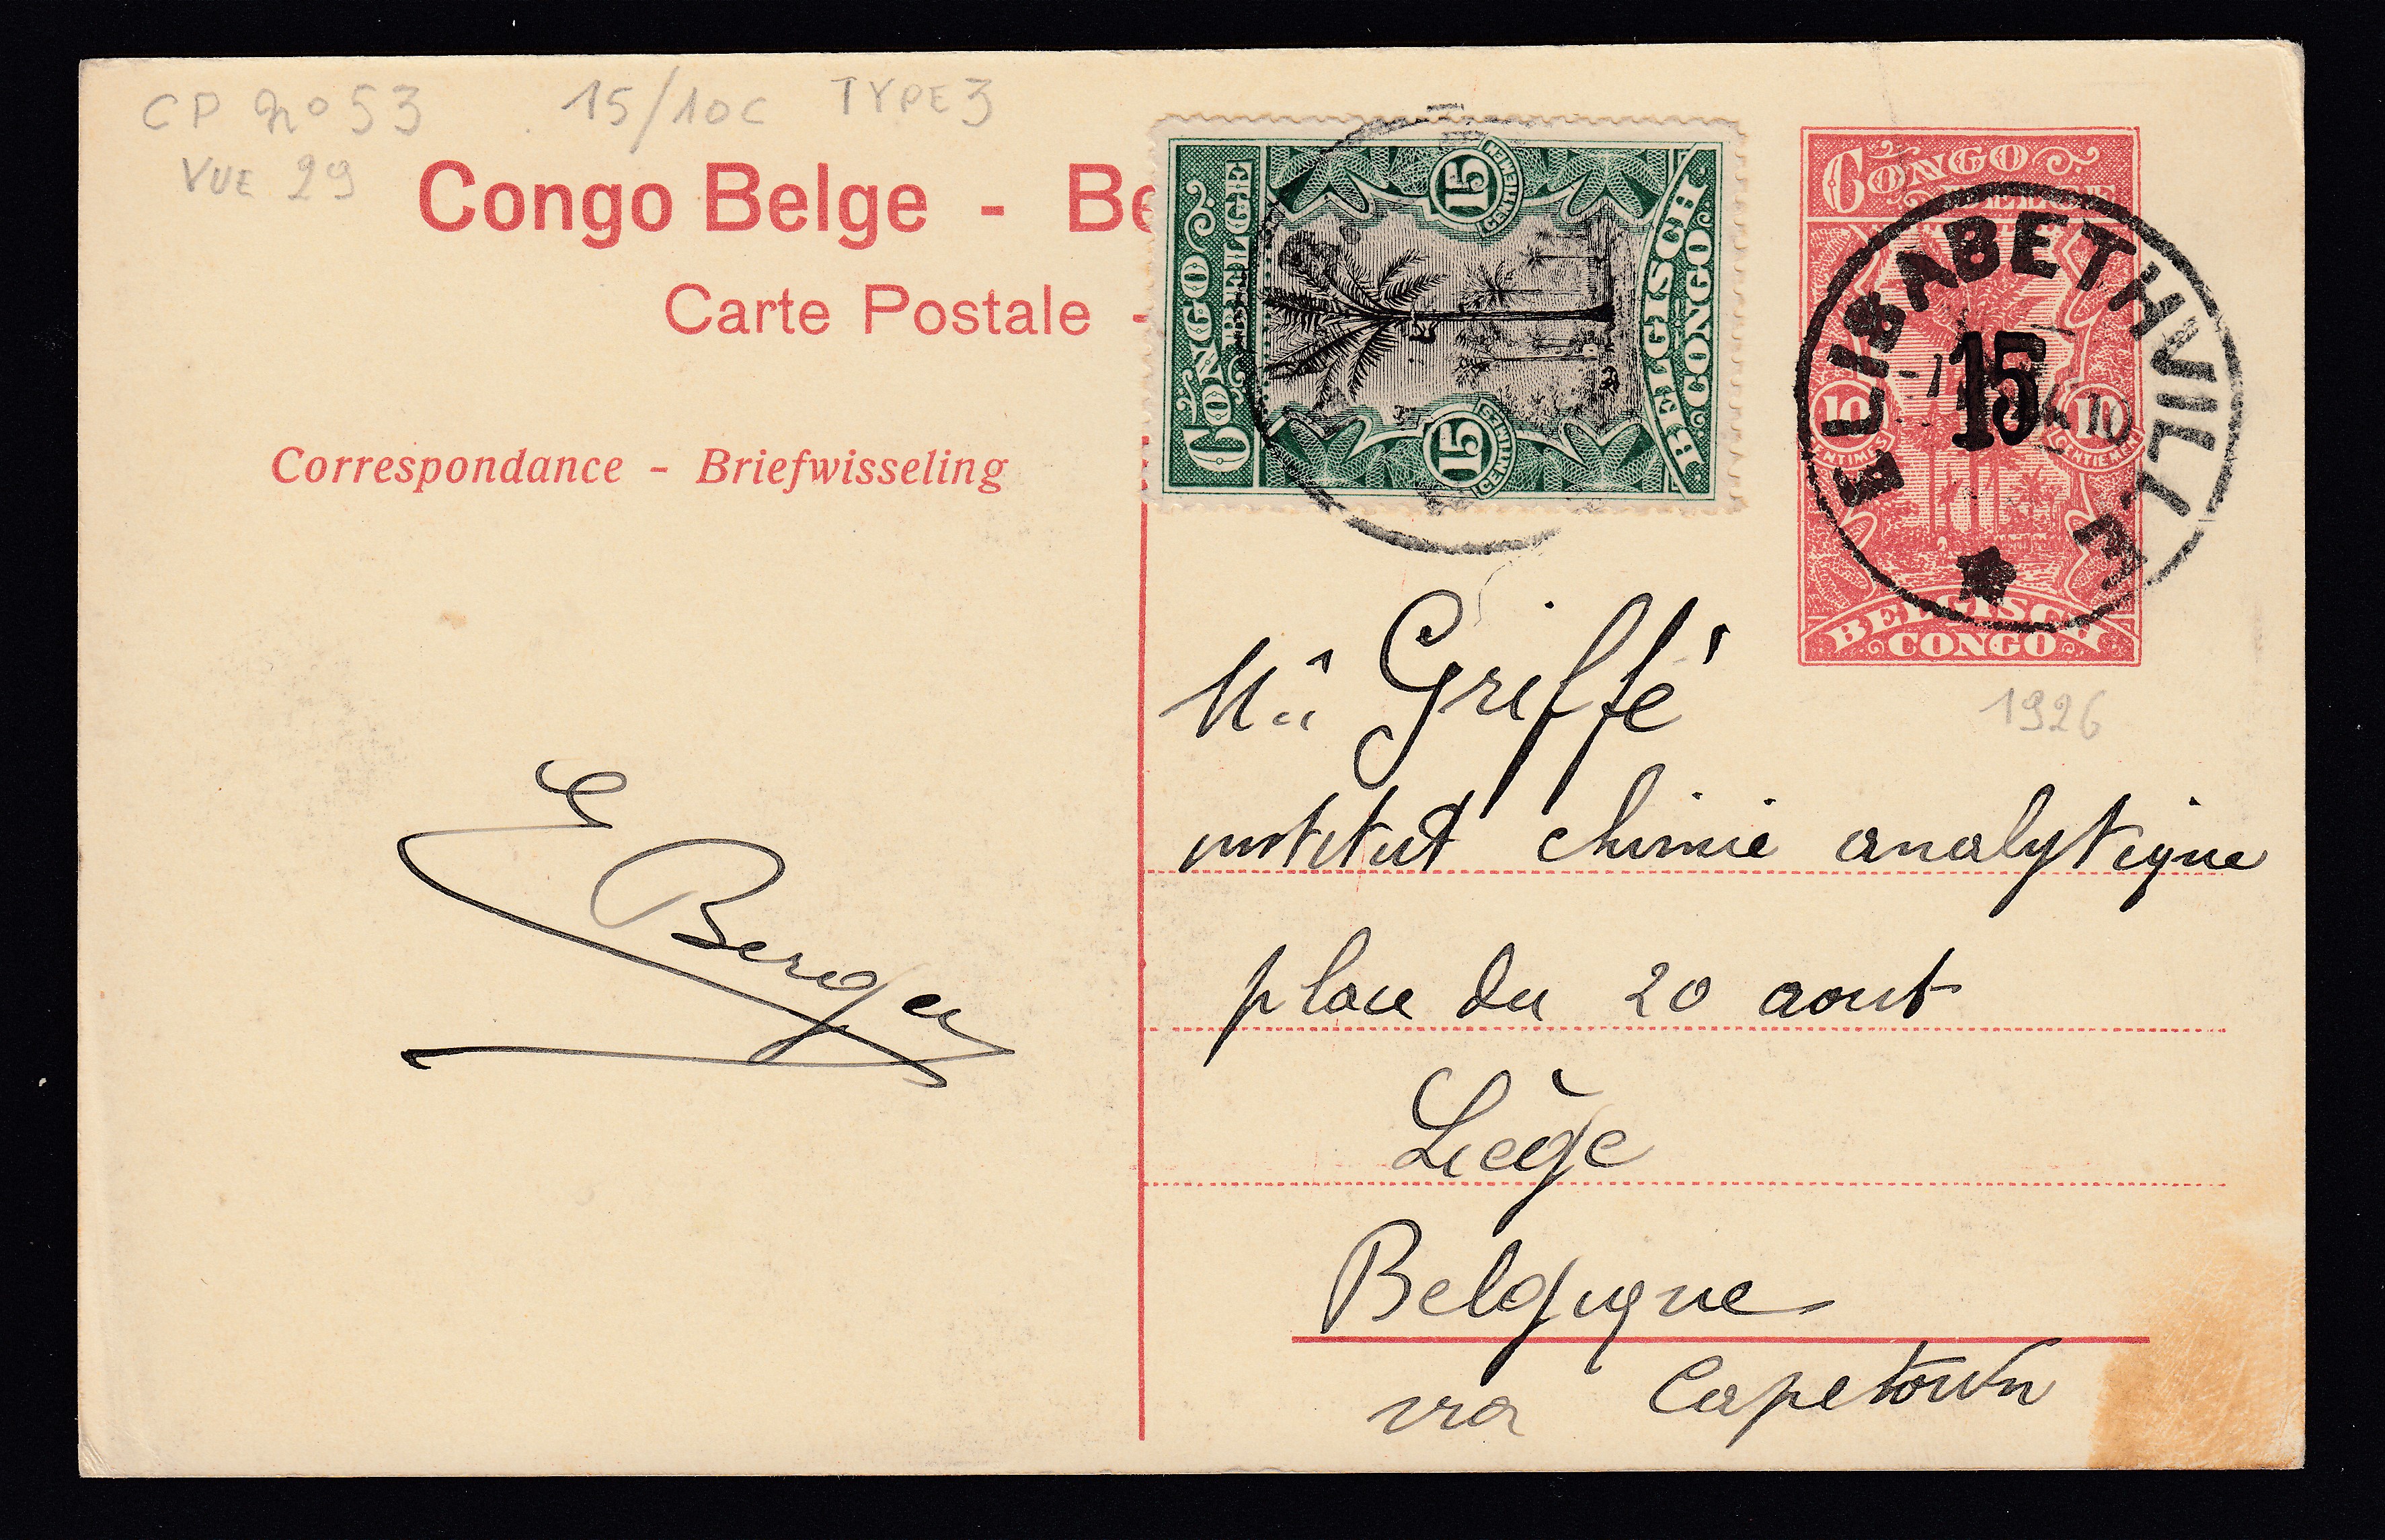 CP no 53 15/10c TYPE 3
VUE 29
Congo Belge - Be
Carte Postale -
Correspondance - Briefwisseling
CONGO BELGE
15 CENTIEMEN
15 CENTIMES
BELGISCH CONGO
CONGO BELGE
ELISABETHVILLE
15
10 CENTIMES
10 CENTIEMEN
BELGISCH
CONGO
1926
Griffé
institut chimie analytique
place du 20 aout
Liège
Belgique
via Capetown
E Berger